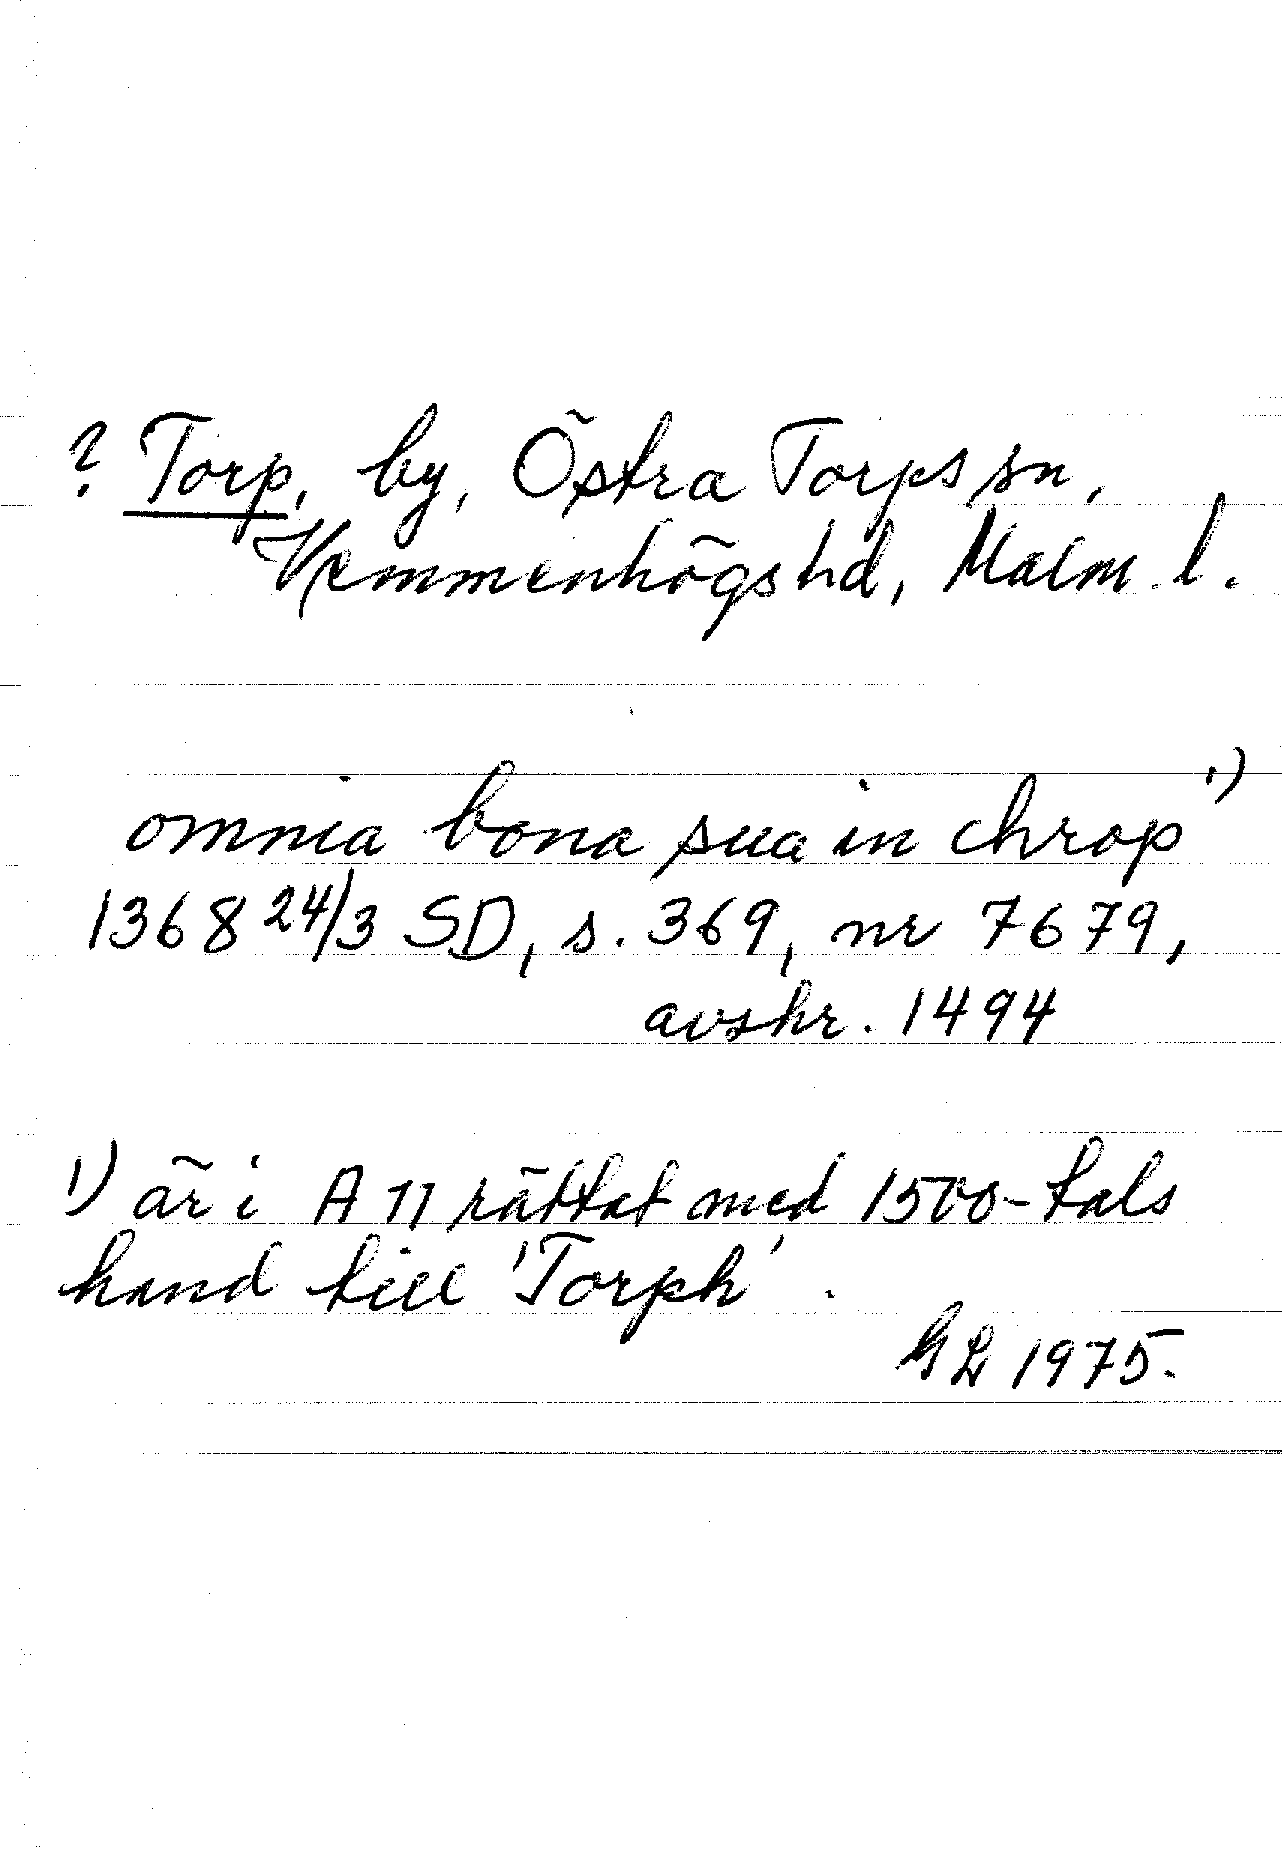 ? Torp, by, Östra Torps sn,
Vemmenhögs hd, Malm. l.
omnia bona sua in chrop 1)
1368 24/3 SD, s. 369, nr 7679,
avskr. 1494
1) är i A 11 rättat med 1500-tals
hand till 'Torph'.
GL 1975.